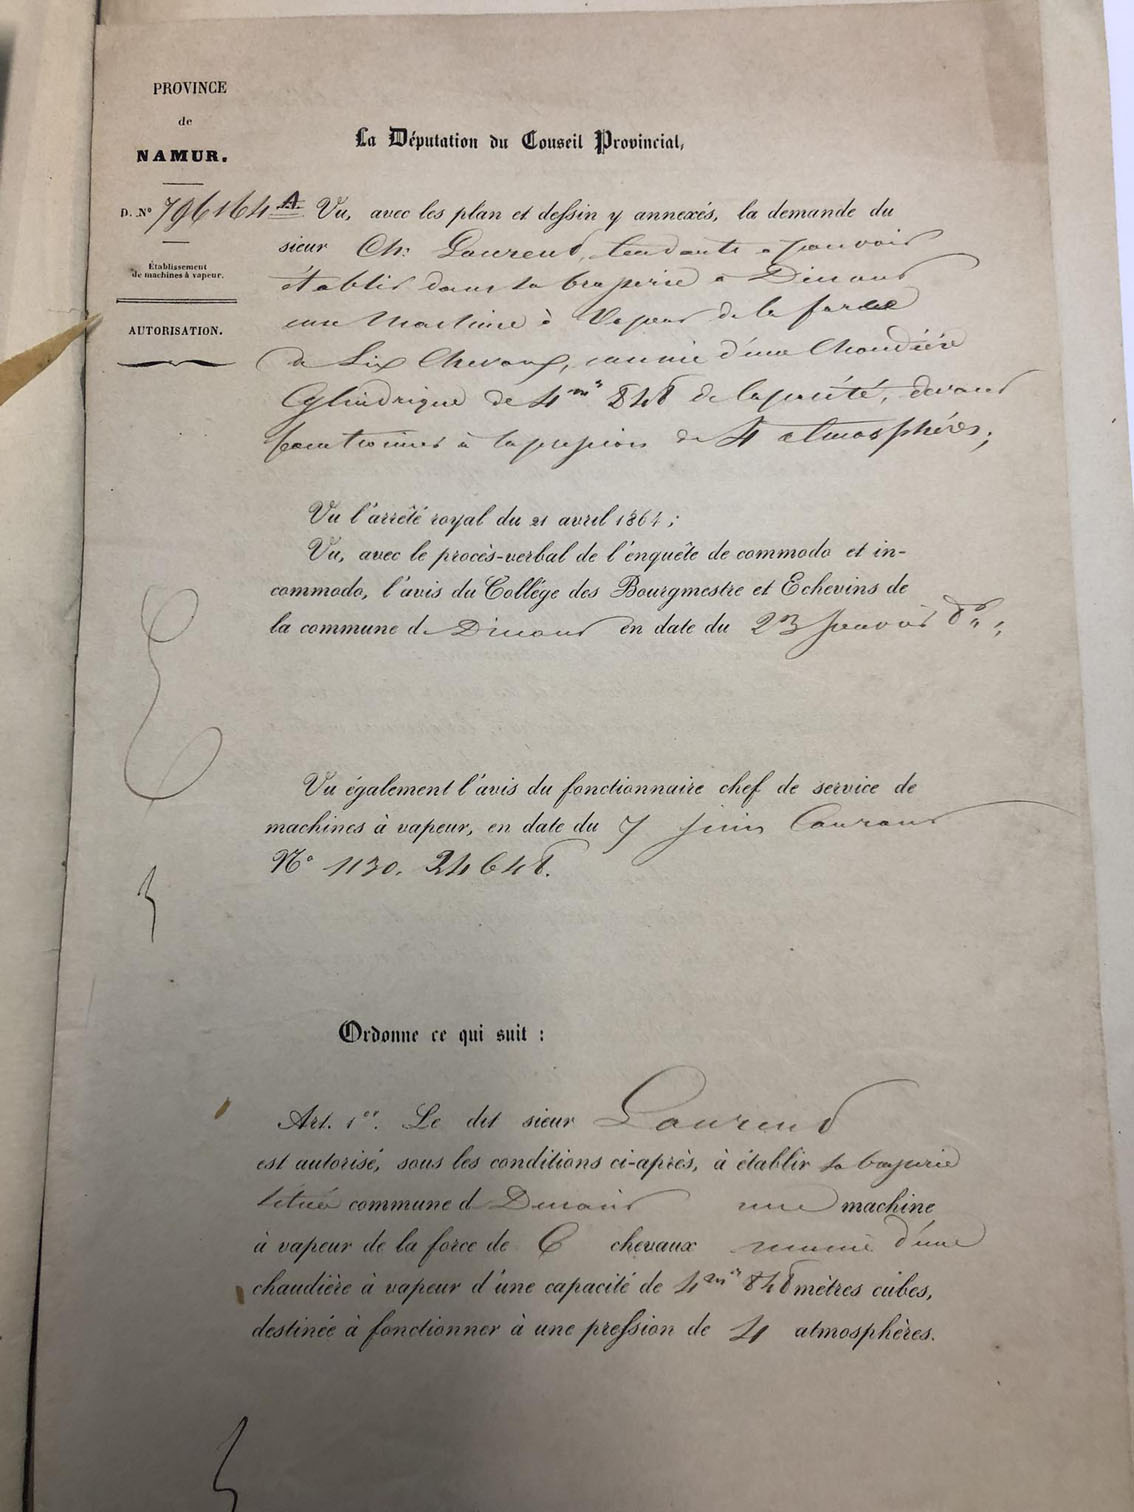 PROVINCE
de
NAMUR.
D. N° 796164 A
Établissement
de machines à vapeur.
AUTORISATION.
La Députation du Conseil Provincial,
Vu, avec les plan et dessin y annexés, la demande du
sieur Ch. Laurent, tendante à pouvoir
établir dans sa braserie à Dinant
une Machine à Vapeur de la force
de Six Chevaux, munie d'une Chaudière
Cylindrique de 4 m³ 848 de capacité, devant
fonctionner à la pression de 4 atmosphères;
Vu l'arrêté royal du 21 avril 1864;
Vu, avec le procès-verbal de l'enquête de commodo et in-
commodo, l'avis du Collége des Bourgmestre et Echevins de
la commune de Dinant en date du 23 Janvier dr;
Vu également l'avis du fonctionnaire chef de service de
machines à vapeur, en date du 7 juin Courant
N° 1130. 24648.
Ordonne ce qui suit :
Art. 1er. Le dit sieur Laurent
est autorisé, sous les conditions ci-après, à établir sa braserie
située commune de Dinant une machine
à vapeur de la force de 6 chevaux munie d'une
chaudière à vapeur d'une capacité de 4 m³ 848 mètres cubes,
destinée à fonctionner à une pression de 4 atmosphères.